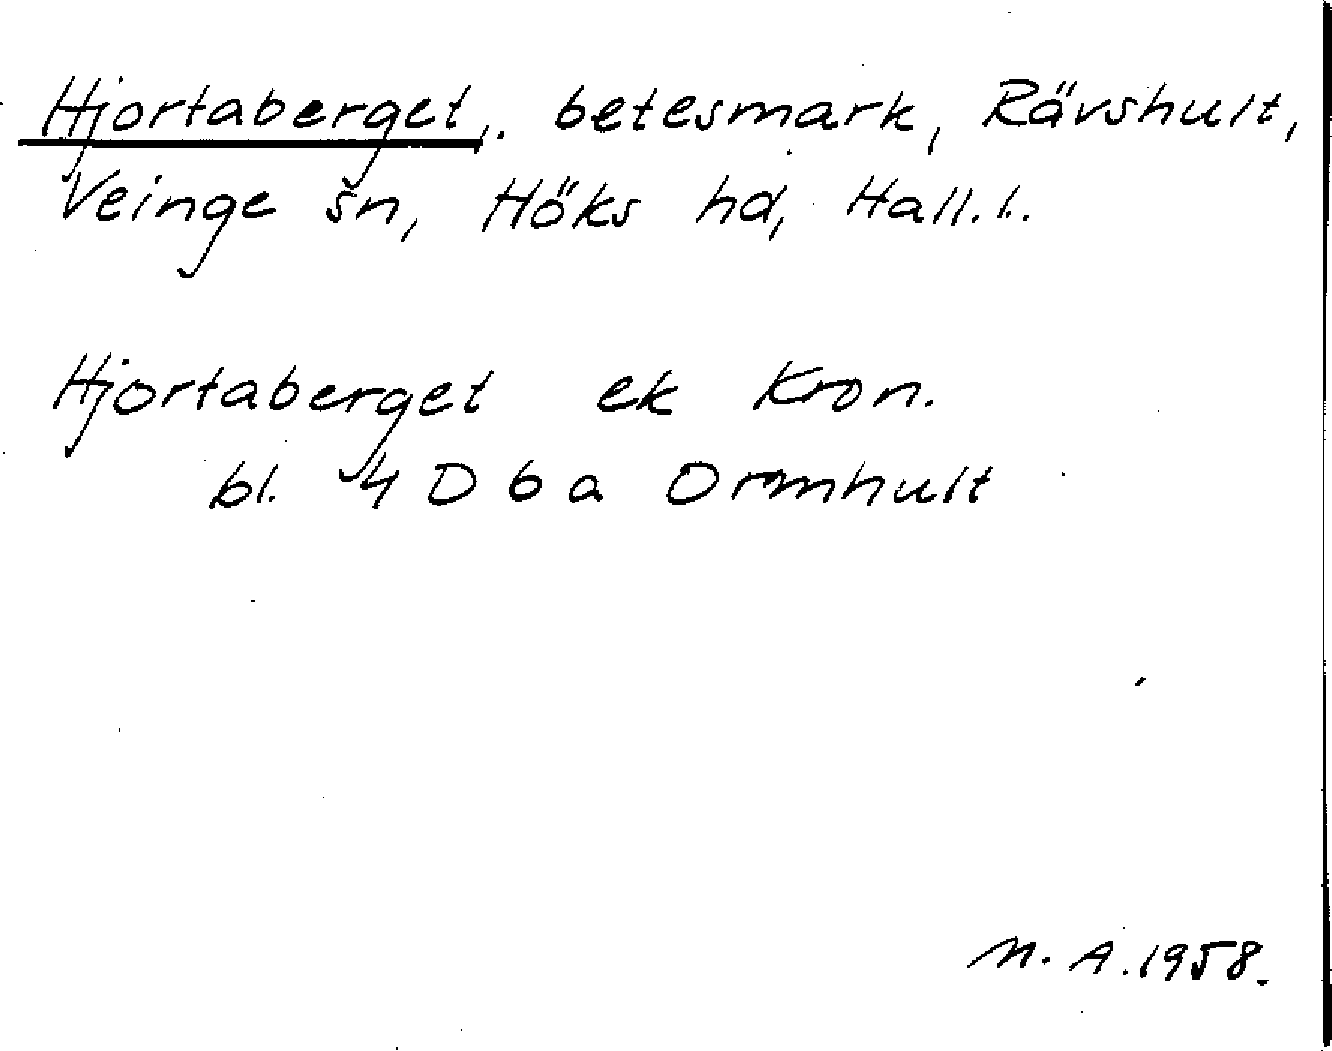 Hjortaberget, betesmark, Rävshult,
Veinge sn, Höks hd, Hall. l.
Hjortaberget ek Kron.
bl. 4 D 6 a Ormhult
M. A. 1958.